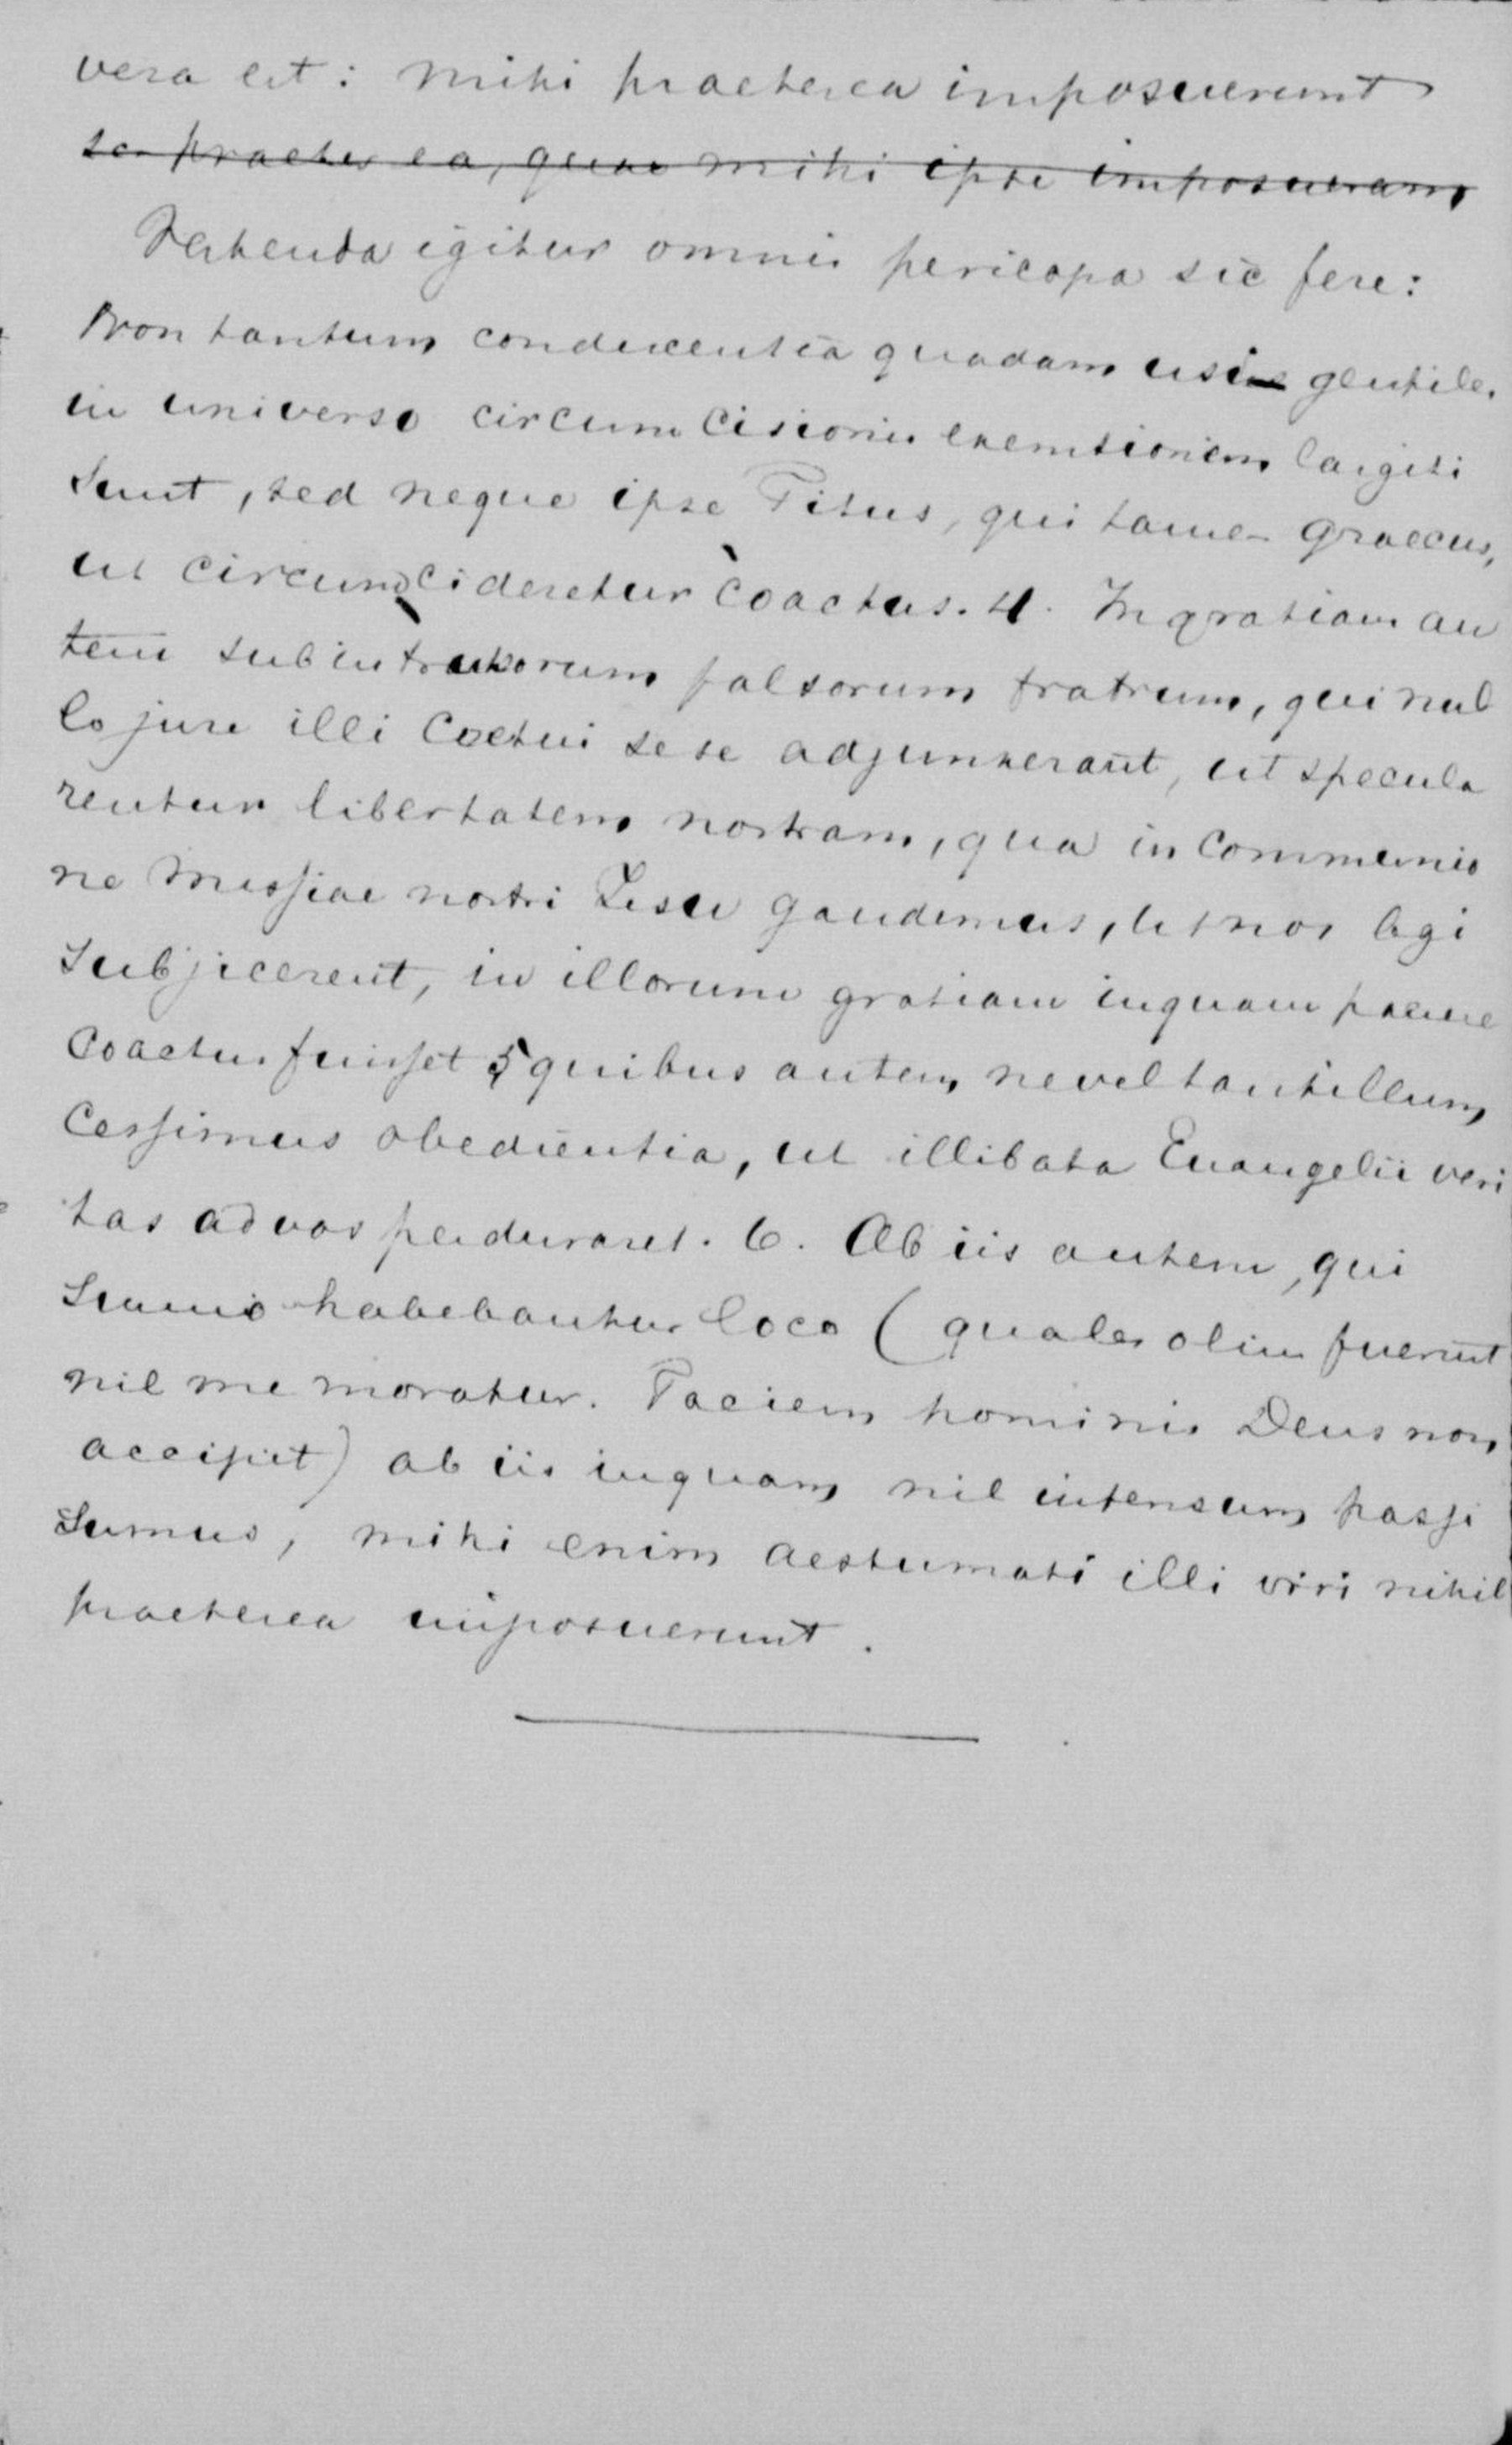 vera est: mihi praeterea imposuerunt
sc. praeter ea, quae mihi ipse imposueram
Vertenda igitur omnis pericopa sic fere:
Non tantum condescentia quadam usi gentiles
in universo circumcisionis exemtionem largiti
sunt, sed neque ipse Titus, qui tamen graecus,
ut circumcideretur coactus. 4. In gratiam au
tem subintratorum falsorum fratrum, qui nul
lo jure illi coetui sese adjunxerant, ut specula
rentur libertatem nostram, qua in communio
ne Messiae nostri Jesu gaudemus, ut nos legi
subjicerent, in illorum gratiam inquam paene
coactus fuisset 5 quibus autem ne vel tantillum
cessimus obedientia, ut illibata Evangelii veri
tas ad vos perduraret. 6. Ab iis autem, qui
summo habebantur loco (quales olim fuerint
nil me moratur. Faciem hominis Deus non
accipit) ab iis inquam nil intensum passi
sumus, mihi enim aestumati illi viri nihil
praeterea imposuerunt.